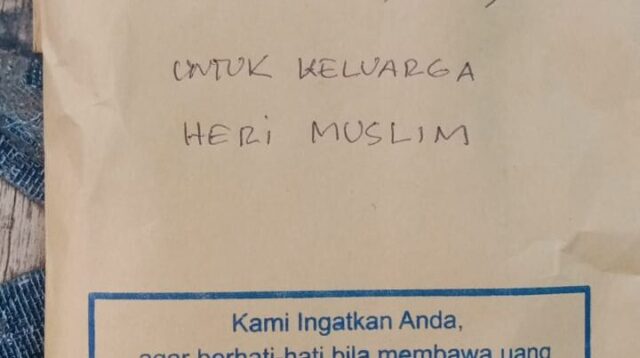 UNTUK KELUARGA
HERI MUSLIM
Kami Ingatkan Anda,
agar berhati-hati bila membawa uang